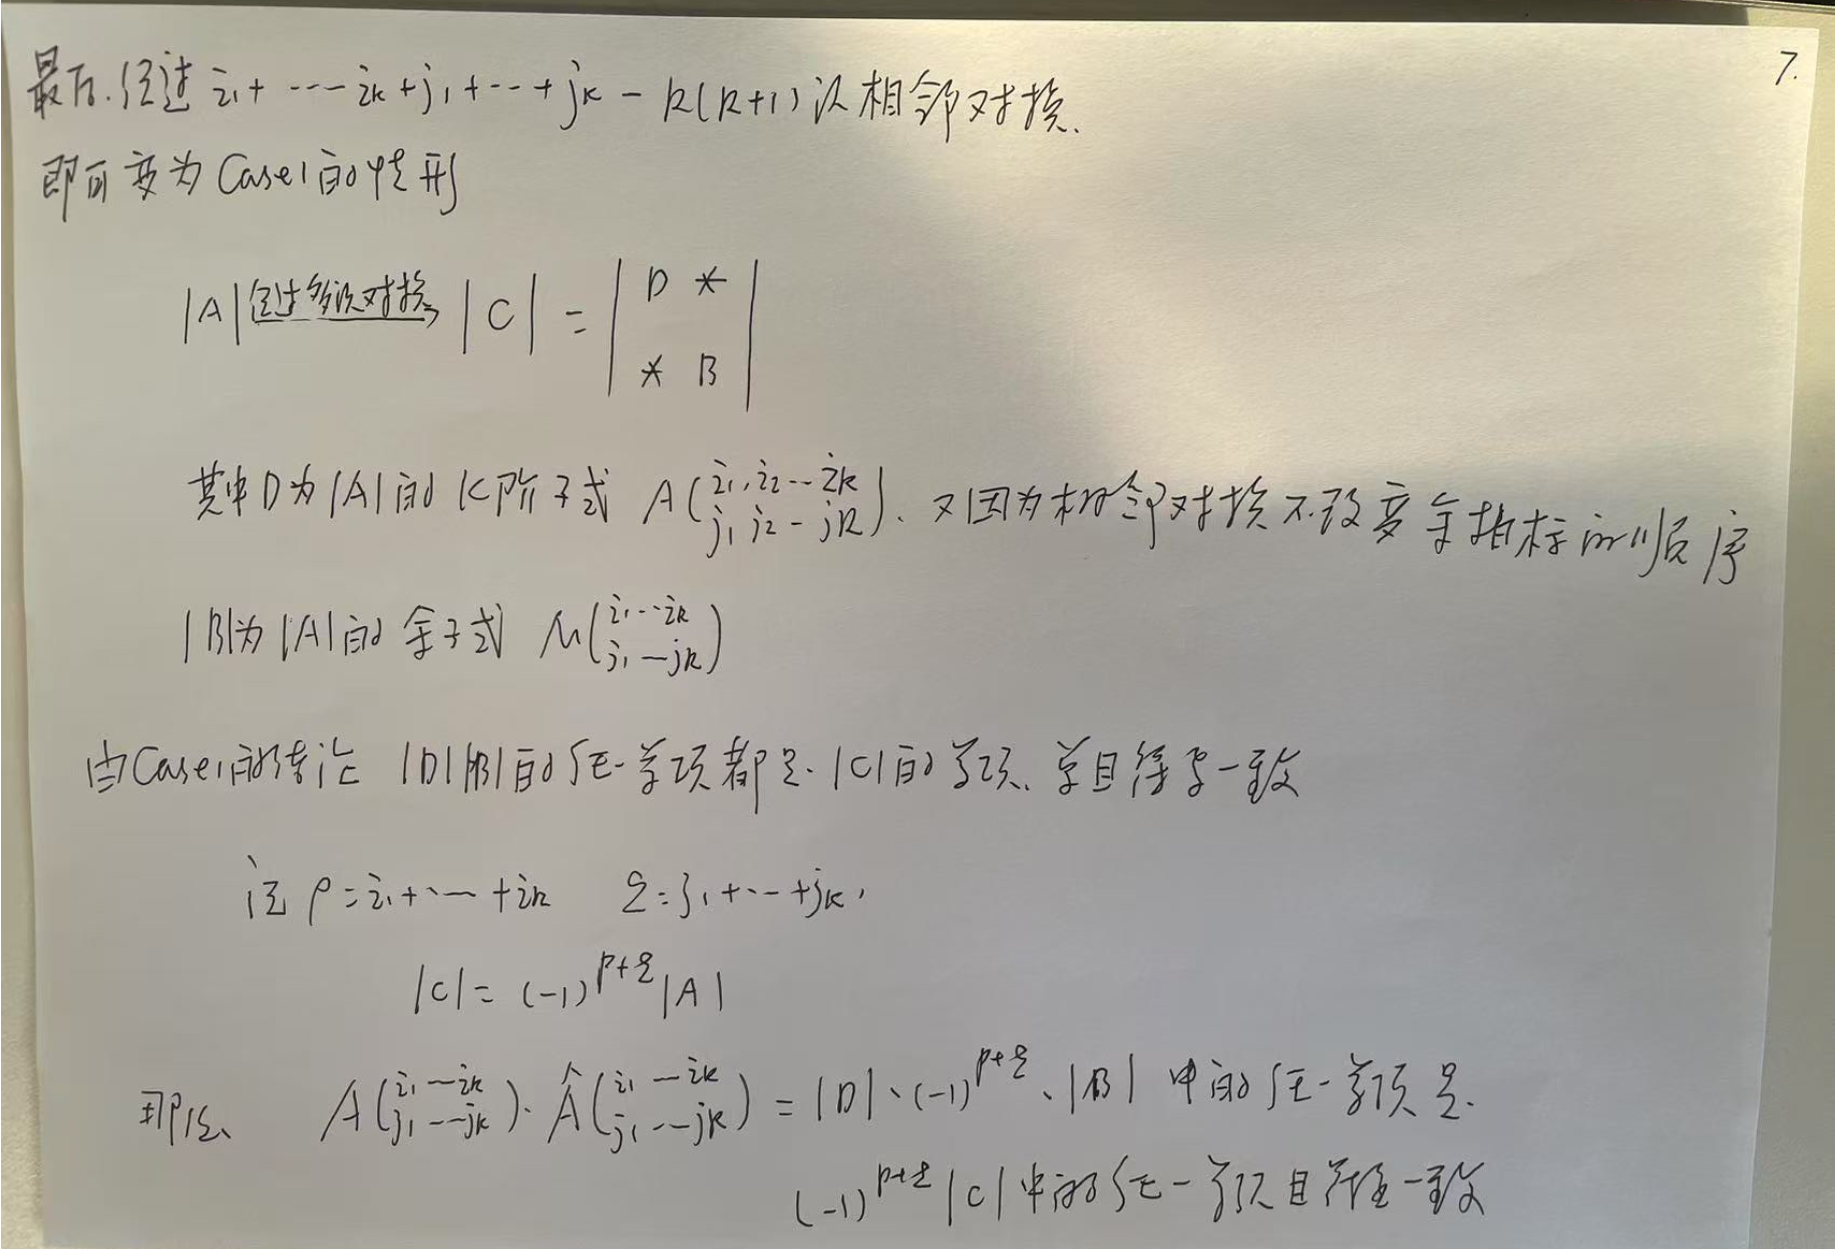 7.
最后.经过 i₁+ ---- iₖ+j₁+---+jₖ - k(k+1) 次相邻对换.
即可变为Case1的情形
|A| 经过多次对换→ |C| = | D * |
| * B |
其中D为|A|的 K阶子式 A(i₁,i₂--iₖ / j₁ j₂ - jₖ). 又因为相邻对换不改变余指标的顺序
|B|为|A|的 余子式 M(i₁--iₖ / j₁ — jₖ)
由Case1的结论 |D||B|的任一单项都是 |C|的单项. 并且符号一致
记 p=i₁+--- +iₖ q=j₁+---+jₖ,
|C| = (-1)^{p+q} |A|
那么 A(i₁ —iₖ / j₁ --jₖ)·Â(i₁ —iₖ / j₁ --jₖ) = |D|·(-1)^{p+q}·|B| 中的任一单项是
(-1)^{p+q} |C| 中的任一单项且符号一致